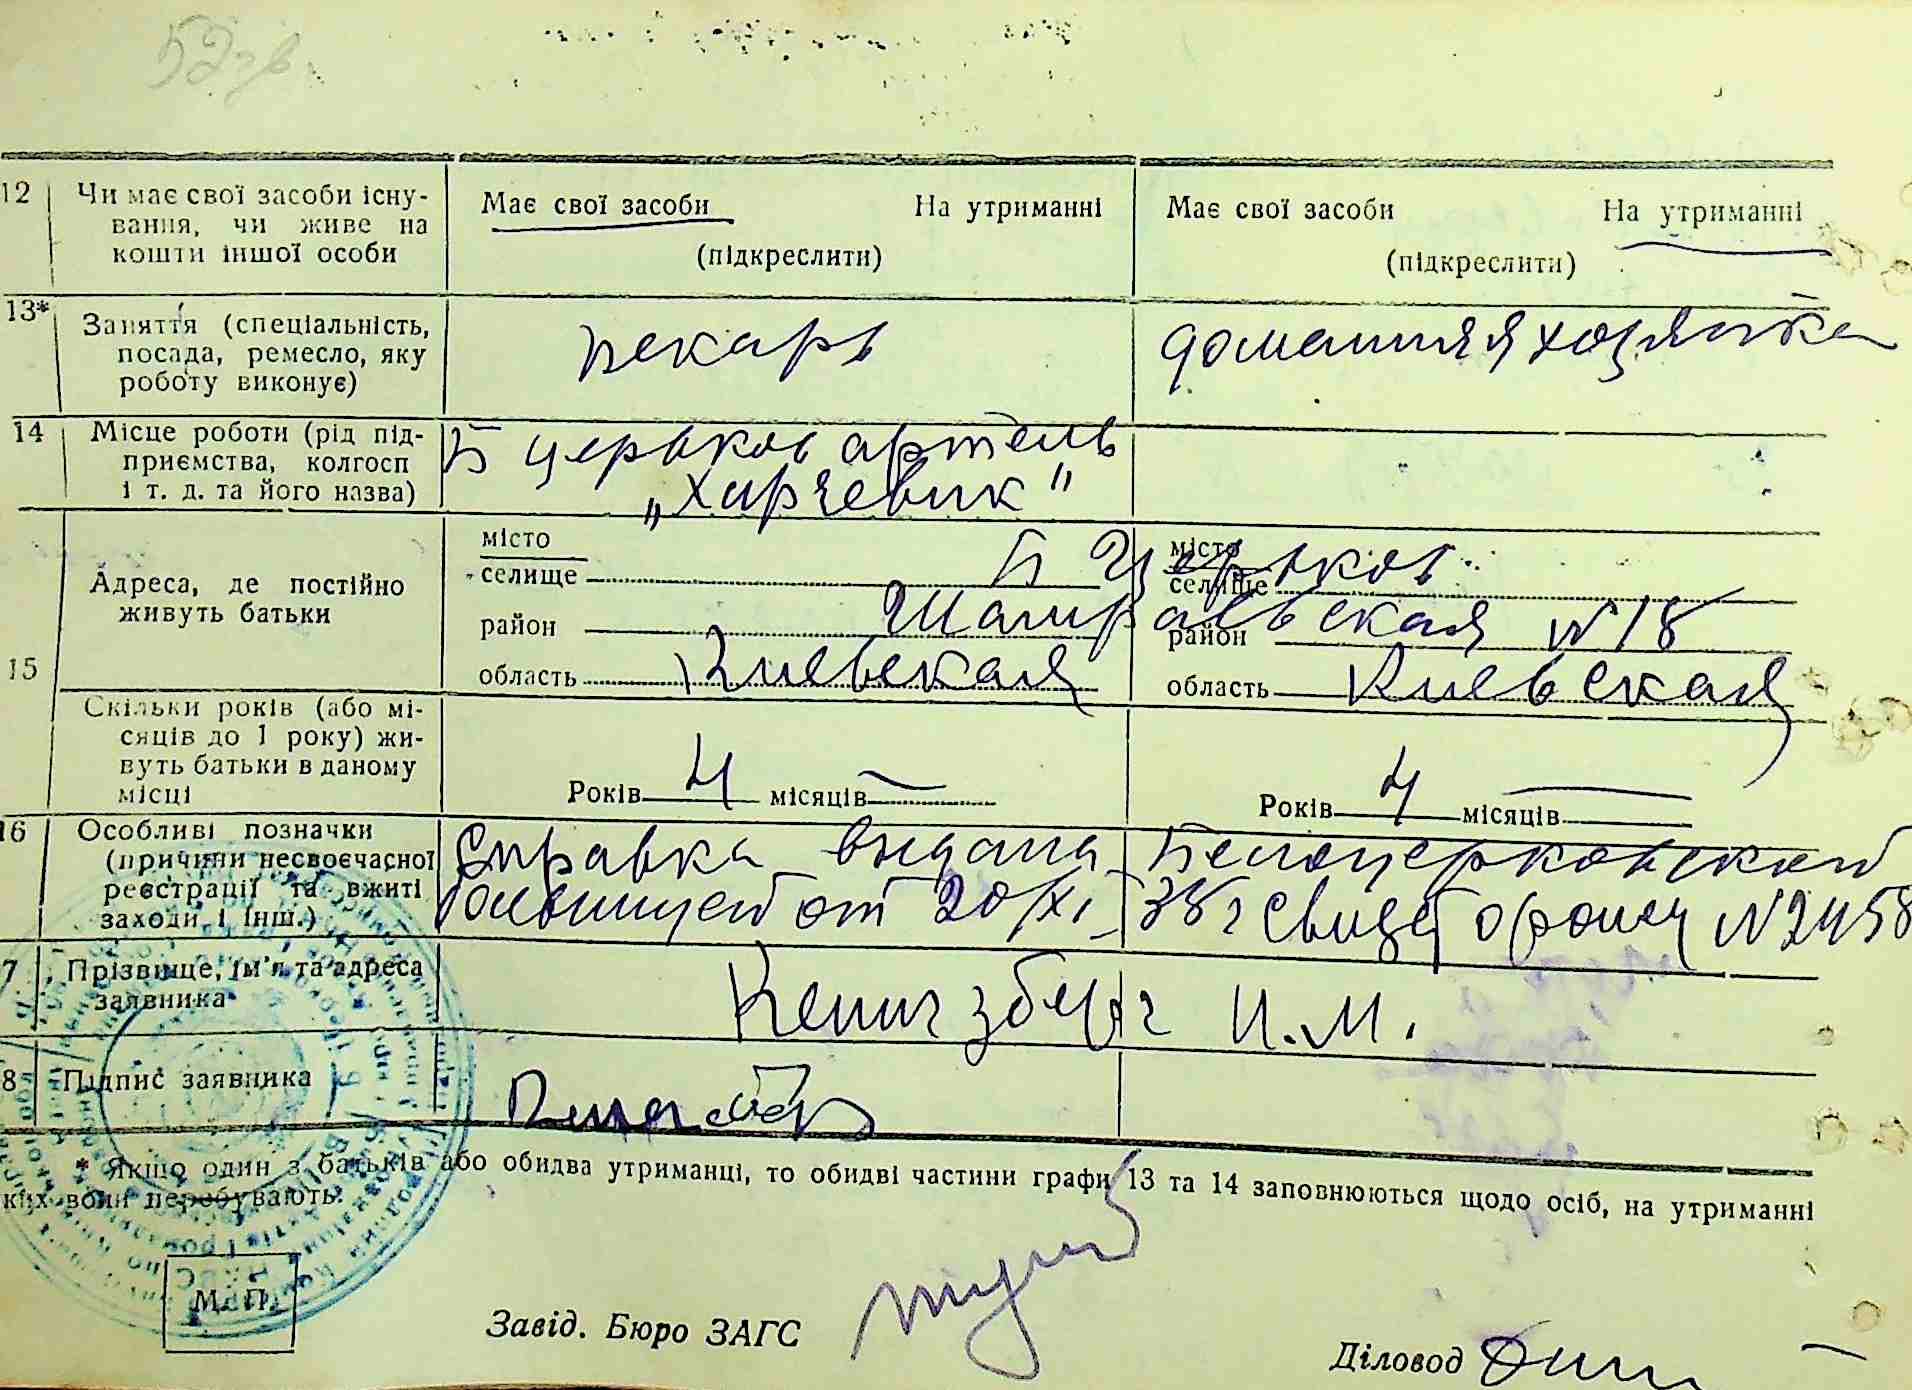 52 зв.
12 Чи має свої засоби існу-
вання, чи живе на
кошти іншої особи
Має свої засоби На утриманні
(підкреслити)
Має свої засоби На утриманні
(підкреслити)
13* Заняття (спеціальність,
посада, ремесло, яку
роботу виконує)
пекарь
домашняя хозяйка
14 Місце роботи (рід під-
приємства, колгосп
і т. д. та його назва)
Б церьков артель
„Харчевик"
15 Адреса, де постійно
живуть батьки
місто
селище
район
область Киевская
місто
селище
район
область Киевская
Б Церьков
Шамраевская №18
Скільки років (або мі-
сяців до 1 року) жи-
вуть батьки в даному
місці
Років 4 місяців —
Років 4 місяців —
16 Особливі позначки
(причини несвоєчасної
реєстрації та вжиті
заходи і інш.)
Справка выдана Белоцерковской
больницей от 20/XI 38 г Свидет о рожд №2458
7 Прізвище, ім'я та адреса
заявника
Кенигзберг И.М.
8 Підпис заявника
* Якщо один з батьків або обидва утриманці, то обидві частини графи 13 та 14 заповнюються щодо осіб, на утриманні
ких вони перебувають.
М. П.
Завід. Бюро ЗАГС
Діловод